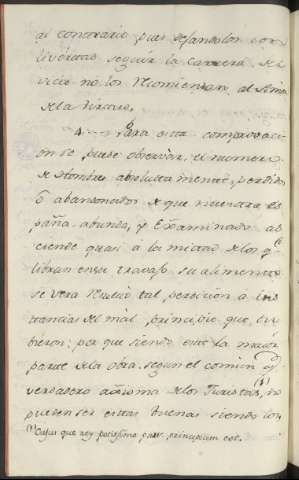 al contrario pues dejandolos con
livertad seguir la Carrera del
vicio no los encomiendan al
de la virtud.
4 Para esta comprovaci-
on se puede observar, el numero
de Hombres absolutamente perdidos
ò abandonados de que nuestra Es
paña abunda, y Examinado as
ciende quasi à la mitad de los qe
libran en su travajo su alimento
se verà tal perdicion a ins
tancias del mal principio que tu
bieron: por que siendo este la maior
parte de la obra, segun el comun y
verdadero axioma de los Juristas, (1) no
pueden ser estas buenas siendo los
(1) Cujus que rey potissima pars principium est.